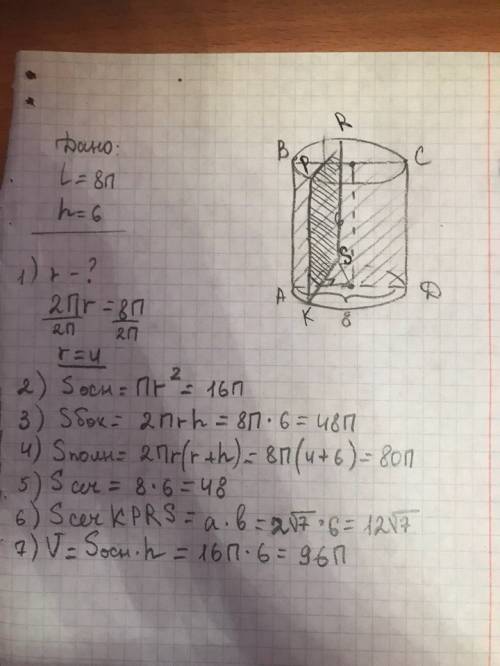 Дано:
L = 8П
h = 6
1) r - ?
2Пr/2П = 8П/2П
r = 4
2) Sосн = Пr² = 16П
3) Sбок = 2Пrh = 8П · 6 = 48П
4) Sполн = 2Пr(r+h) = 8П(4+6) = 80П
5) Sсеч = 8 · 6 = 48
6) Sсеч KPRS = a · b = 2√7 · 6 = 12√7
7) V = Sосн · h = 16П · 6 = 96П
R
B
C
P
6
S
A
D
K
8